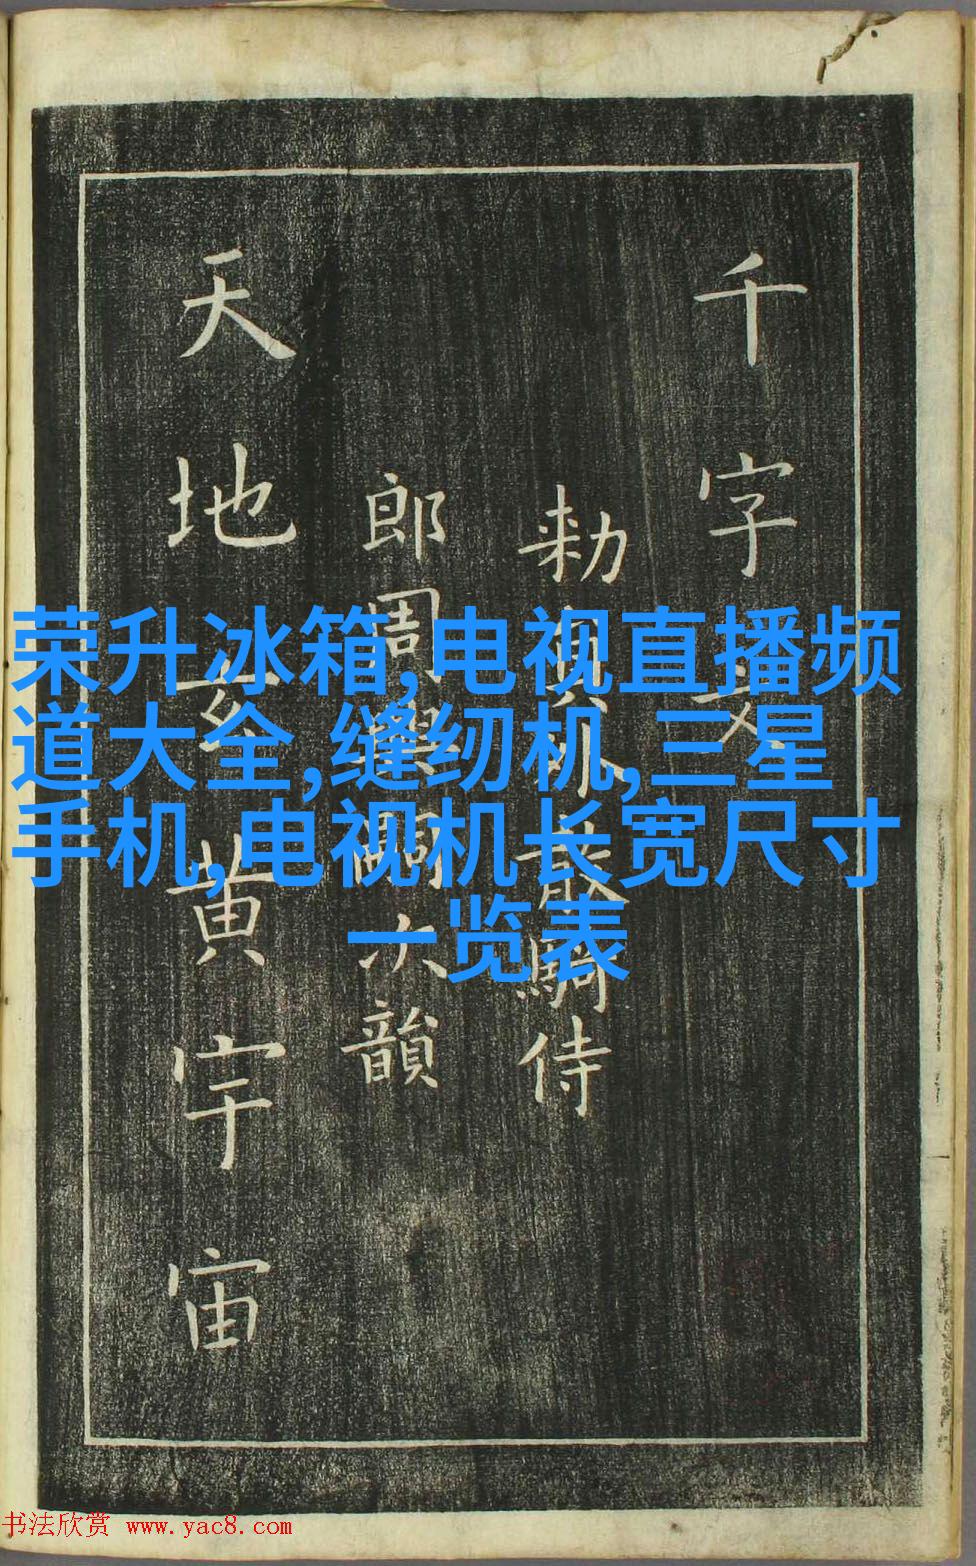 千字文
勑員外散騎侍
郎周興嗣次韻
天地玄黄宇宙
荣升冰箱,电视直播频
道大全,缝纫机,三星
手机,电视机长宽尺寸
一览表
书法欣赏 www.yac8.com